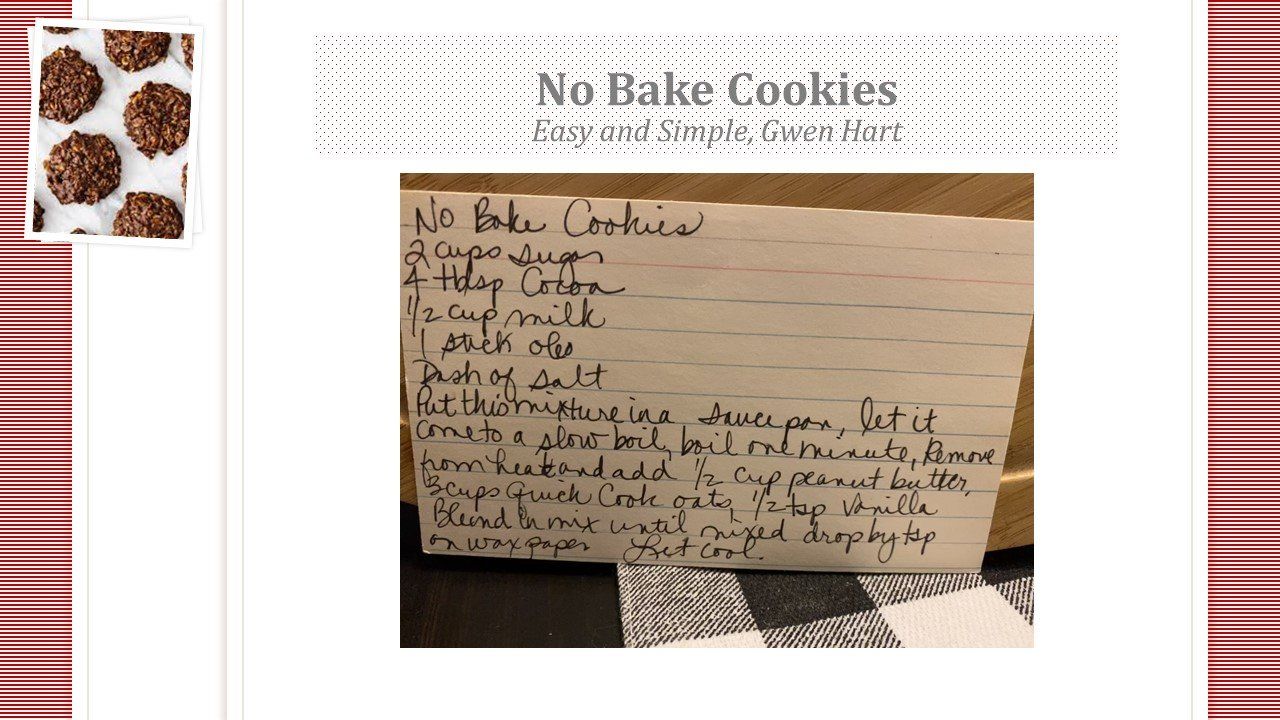 No Bake Cookies
Easy and Simple, Gwen Hart
No Bake Cookies
2 cups sugar
4 tbsp Cocoa
1/2 cup milk
1 stick oleo
Dash of salt
Put this mixture in a sauce pan, let it
come to a slow boil, boil one minute, Remove
from heat and add 1/2 cup peanut butter,
3 cups Quick Cook oats, 1/2 tsp Vanilla
Blend in mix until mixed drop by tsp
on wax paper Let cool.